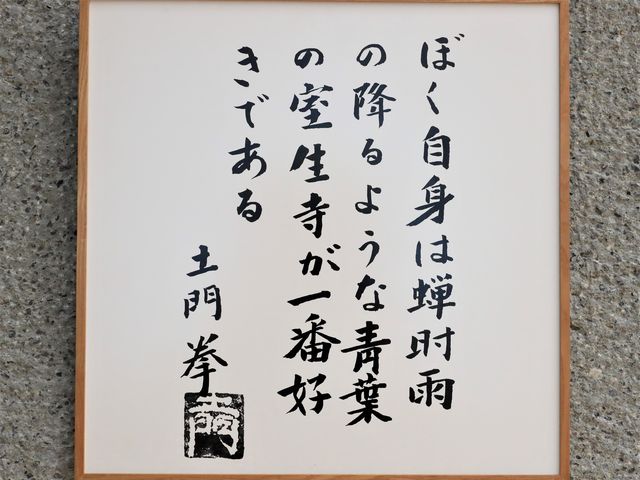 ぼく自身は蝉时雨
の降るような青葉
の室生寺が一番好
きである
土門拳